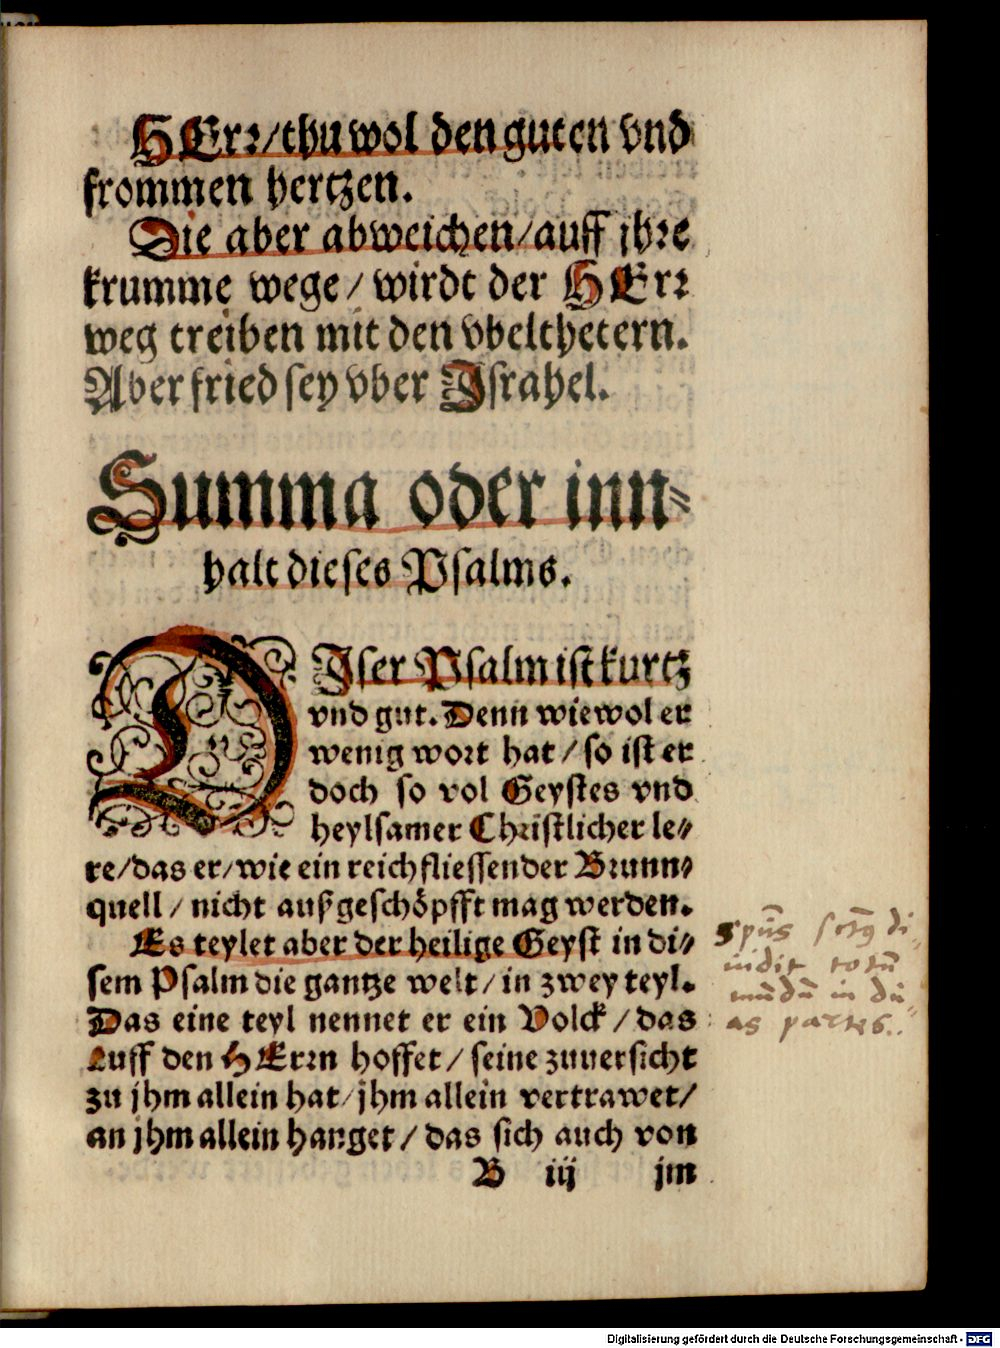 HErꝛ/thu wol den guten vnd
frommen hertzen.
Die aber abweichen/auff jhꝛe
krumme wege/wirdt der HErꝛ
weg treiben mit den vbelthetern.
Aber fried sey vber Jsrahel.
Summa oder inn⸗
halt dieses Psalms.
DJser Psalm ist kurtz
vnd gut. Denn wiewol er
wenig woꝛt hat/so ist er
doch so vol Geystes vnd
heylsamer Chꝛistlicher le⸗
re/das er/wie ein reich fliessender Bꝛunn⸗
quell/nicht außgeschöpfft mag werden.
Es teylet aber der heilige Geyst in di⸗
sem Psalm die gantze welt/in zwey teyl.
Das eine teyl nennet er ein Volck/das
auff den HErꝛn hoffet/seine zuuersicht
zu jhm allein hat/jhm allein vertrawet/
an jhm allein hanget/das sich auch von
B iij jm
Spūs sctꝰ di⸗
uidit totū
mūdū in du⸗
as partes.
Digitalisierung gefördert durch die Deutsche Forschungsgemeinschaft - DFG